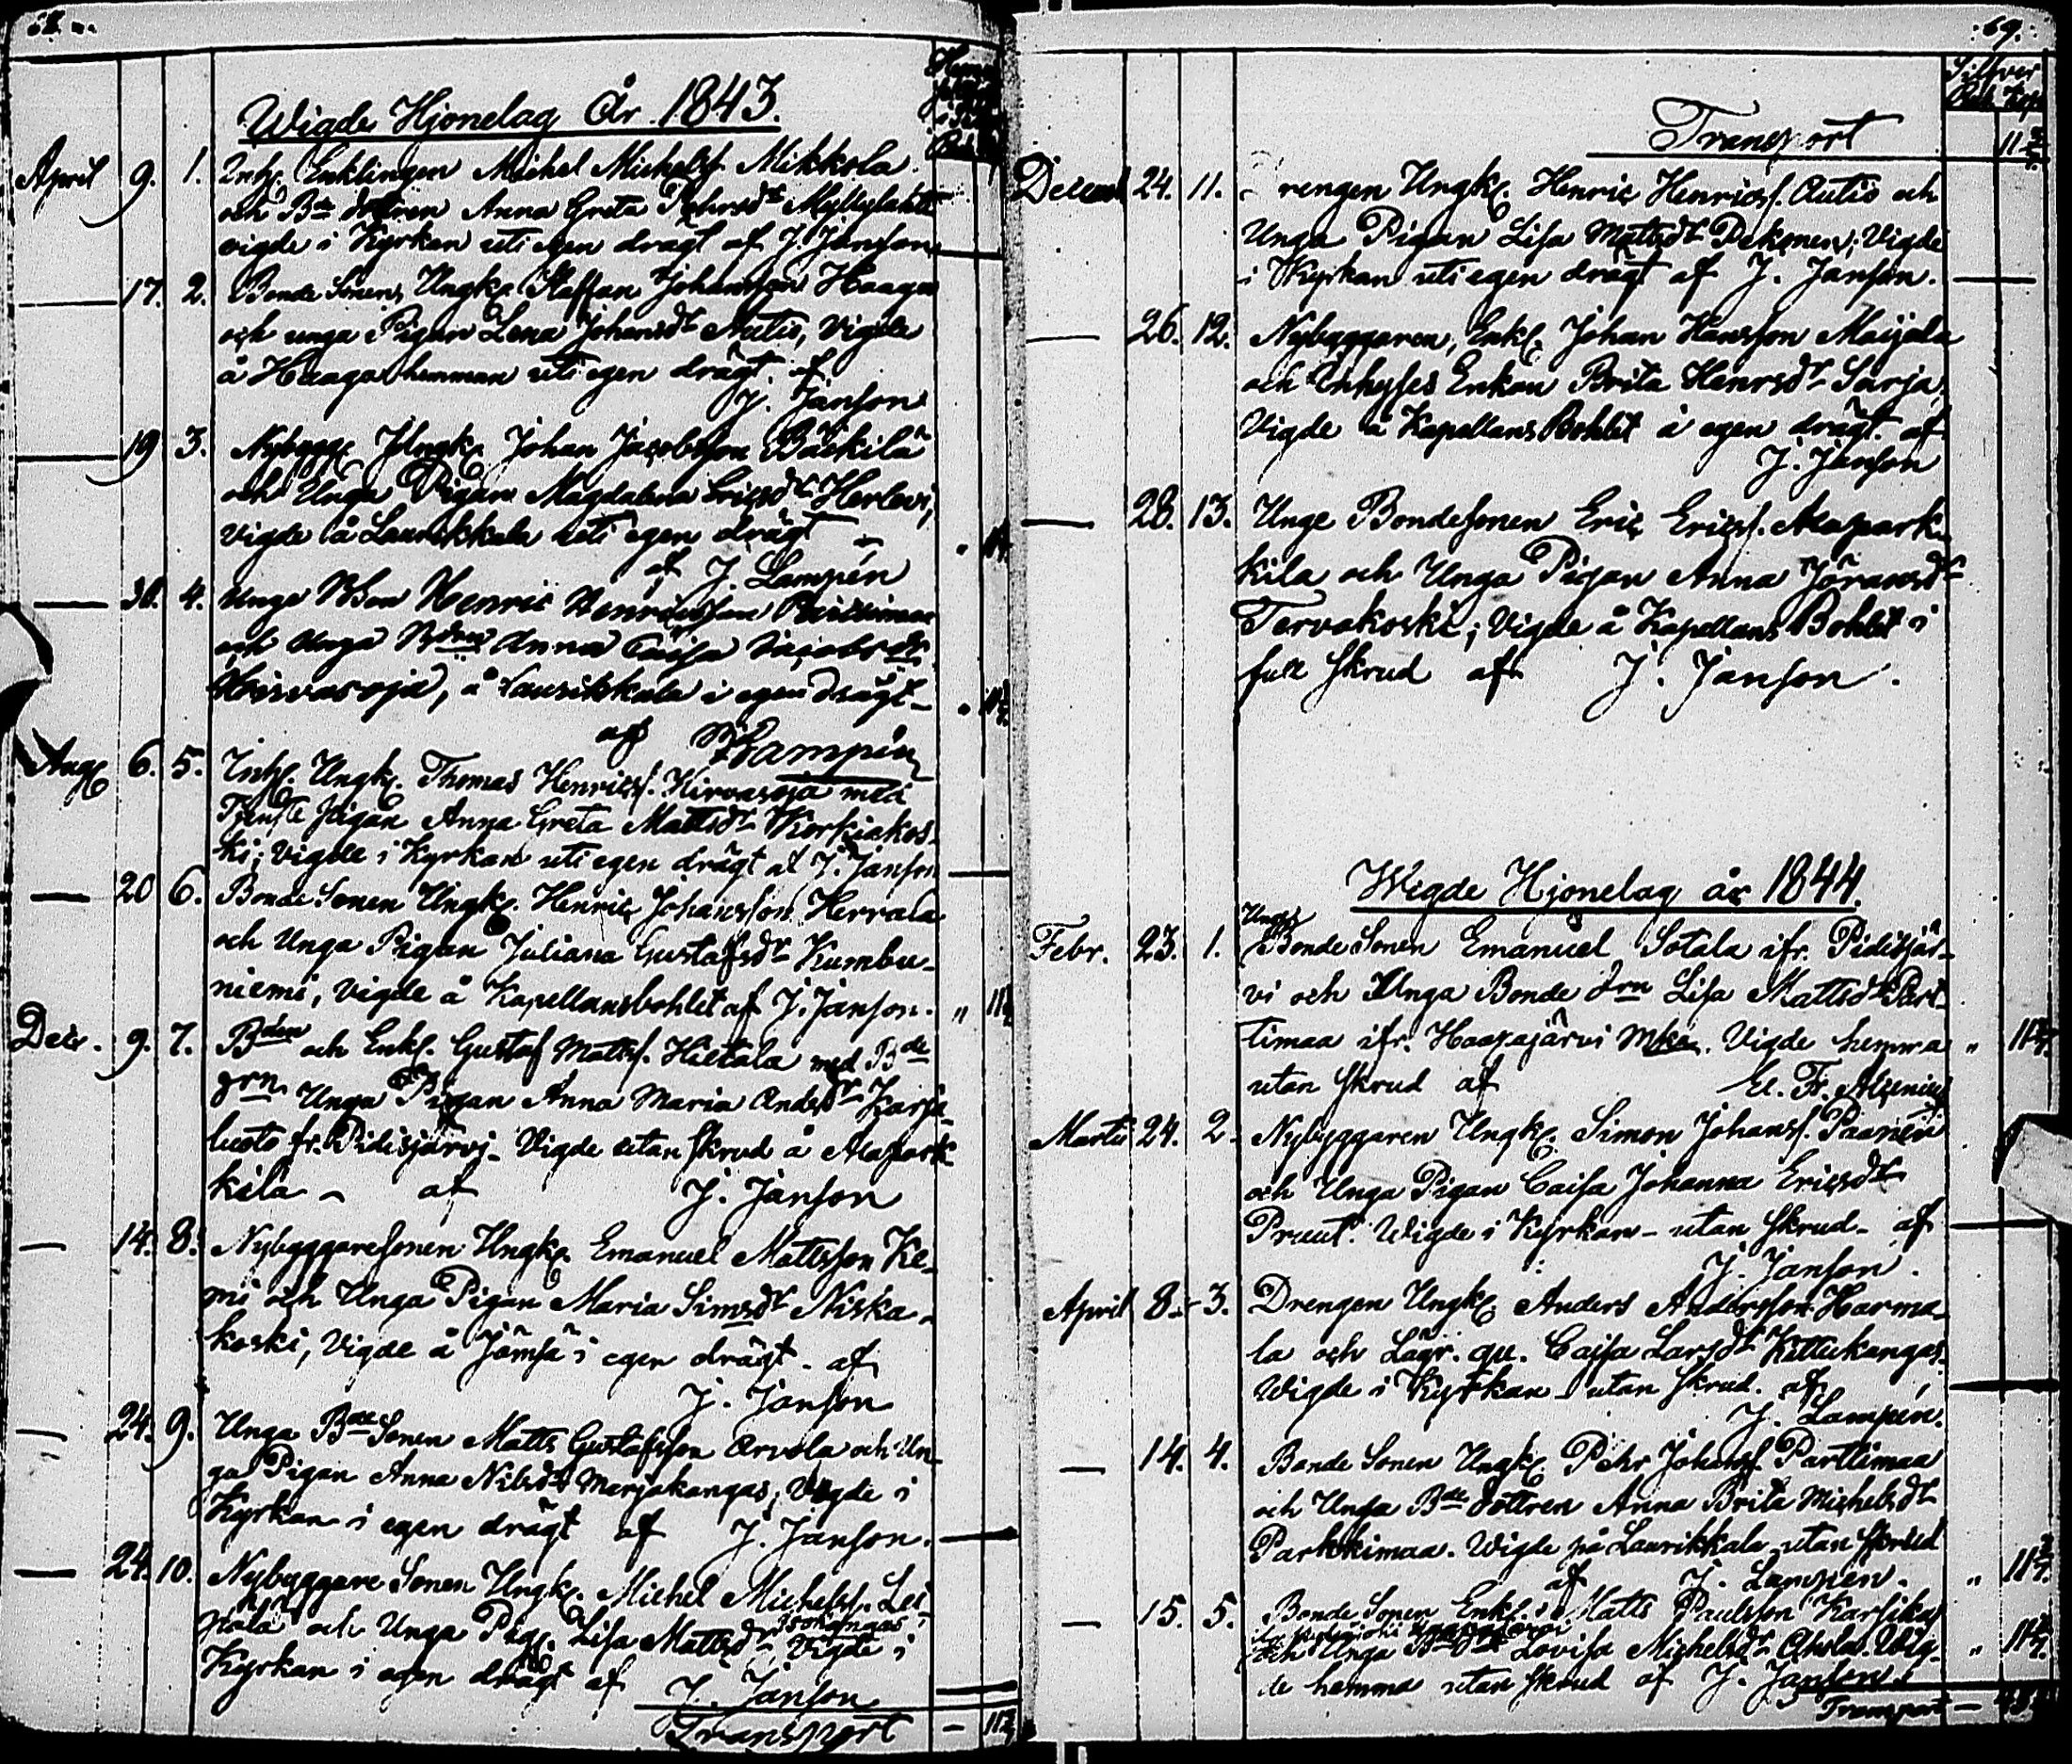 Wigde Hjonelag År 1843.
April 9. 1. Inh. Enklingen Michel Michelsf. Mikkola
och Bde dottren Anna Greta Pehrsdr Myllylahti
vigde i Kyrkan uti egen drägt af J. Janson
17. 2. Bonde Sonen, Ungk. Staffan Johansson Haaga
och unga Pigan Lena Johansdr Autio, Vigde
å Haaga hemman uti egen drägt. af
J. Janson
19 3. Nybygg. Ungk. Johan Jacobsson Bäckilä
och Unga Pigan Magdalena Ericsdr Herlevi,
vigde å Laurikkala uti egen drägt
af J. Lampén
30. 4. Unge BSon Henric Henricsson
och Unga Anna Caisa Jacobsdr
Hirvasoja, å Laurikkala i egen drägt
af J. Lampén
Aug. 6. 5. Inh. Ungk. Thomas Henricsf. Hirvasoja med
Tjenste Pigan Anna Greta Mattsdr Korkiakos-
ki; vigde i Kyrkan uti egen drägt af J. Janson
20 6. Bonde Sonen Ungk. Henric Johansson Herrala
och Unga Pigan Juliana Gustafsdr Kumbu-
niemi, vigde å Kapellansbohlet af J. Janson. "
Decr. 9. 7. Bden och Enkl. Gustaf Mattsf. Hietala med Bde
drn Unga Pigan Anna Maria Andersdr Karja-
luoto fr. Pidisjärvi. Vigde utan skrud å Alapark-
kila - af J. Janson
14. 8. Nybyggaresonen Ungk. Emanuel Mattsson Ke-
mi och Unga Pigan Maria Simsdr Niska-
koski, Vigde å Jämsä i egen drägt. af
J. Janson
24. 9. Unga Bde Sonen Matts Gustafsson Arvola och Un-
ga Pigan Anna Nilsdr Marjakangas; Vigde i
Kyrkan i egen drägt af J. Janson.
24. 10. Nybyggare Sonen Ungk. Michel Michelsf. Lei-
pola och Unga Pig. Lisa Mattsdr Isokangas Vigde i
Kyrkan i egen drägt af J. Janson
Transport
69.
Silfver
Rub. Kop
Transport 11 2/7
Decemb 24. 11. rengen Ungk. Henric Henricsf. Autio och
Unga Pigan Lisa Mattsdr Pekonen; Vigde
i Kyrkan uti egen drägt af J. Janson.
26. 12. Nybyggaren, Enkl. Johan Hansson Maijala
och Inhyses Enkan Brita Henrsdr Sarja,
Vigde å Kapellans Bohlet å egen drägt. af
J. Janson
28. 13. Unge Bondesonen Eric Ericsf. Alapark-
kila och Unga Pigan Anna Göransdr
Tervakoski; Vigde å Kapellans Bohlet i
full skrud af J. Janson.
Wigde Hjonelag år 1844.
Febr. 23. 1. Unge Bonde Sonen Emanuel Sotala ifr. Pidisjär-
vi och Unga Bonde drn Lisa Mattsdr Part-
timaa ifr. Haapajärvi Mka. Vigde hemma " 11 2/7.
utan skrud af El. Fr. Alcenius
Martii 24. 2. Nybyggaren Ungk. Simon Johansf. Paanen
och Unga Pigan Caisa Johanna Ericsdr
Pruut. Wigde i Kyrkan - utan skrud - af
J. Janson.
April 8. 3. Drengen Ungk. Anders Andersson Harma-
la och Lägr. qu. Caisa Larsdr Kittukangas.
Wigde i Kyrkan - utan skrud. af
J. Lampén.
14. 4. Bonde Sonen Ungk. Pehr Johansf. Parttimaa
och Unga Bde dottren Anna Brita Michelsdr
Parkkimaa. Wigde på Laurikkala utan skrud
af J. Lampén. " 11 2/7.
15. 5. Bonde Sonen Enkl. Matts Paulsson Karsikas
och Unga Bde Lovisa Michelsdr Ahola. Wig-
de hemma utan skrud af J. Janson " 11 2/7.
Transport